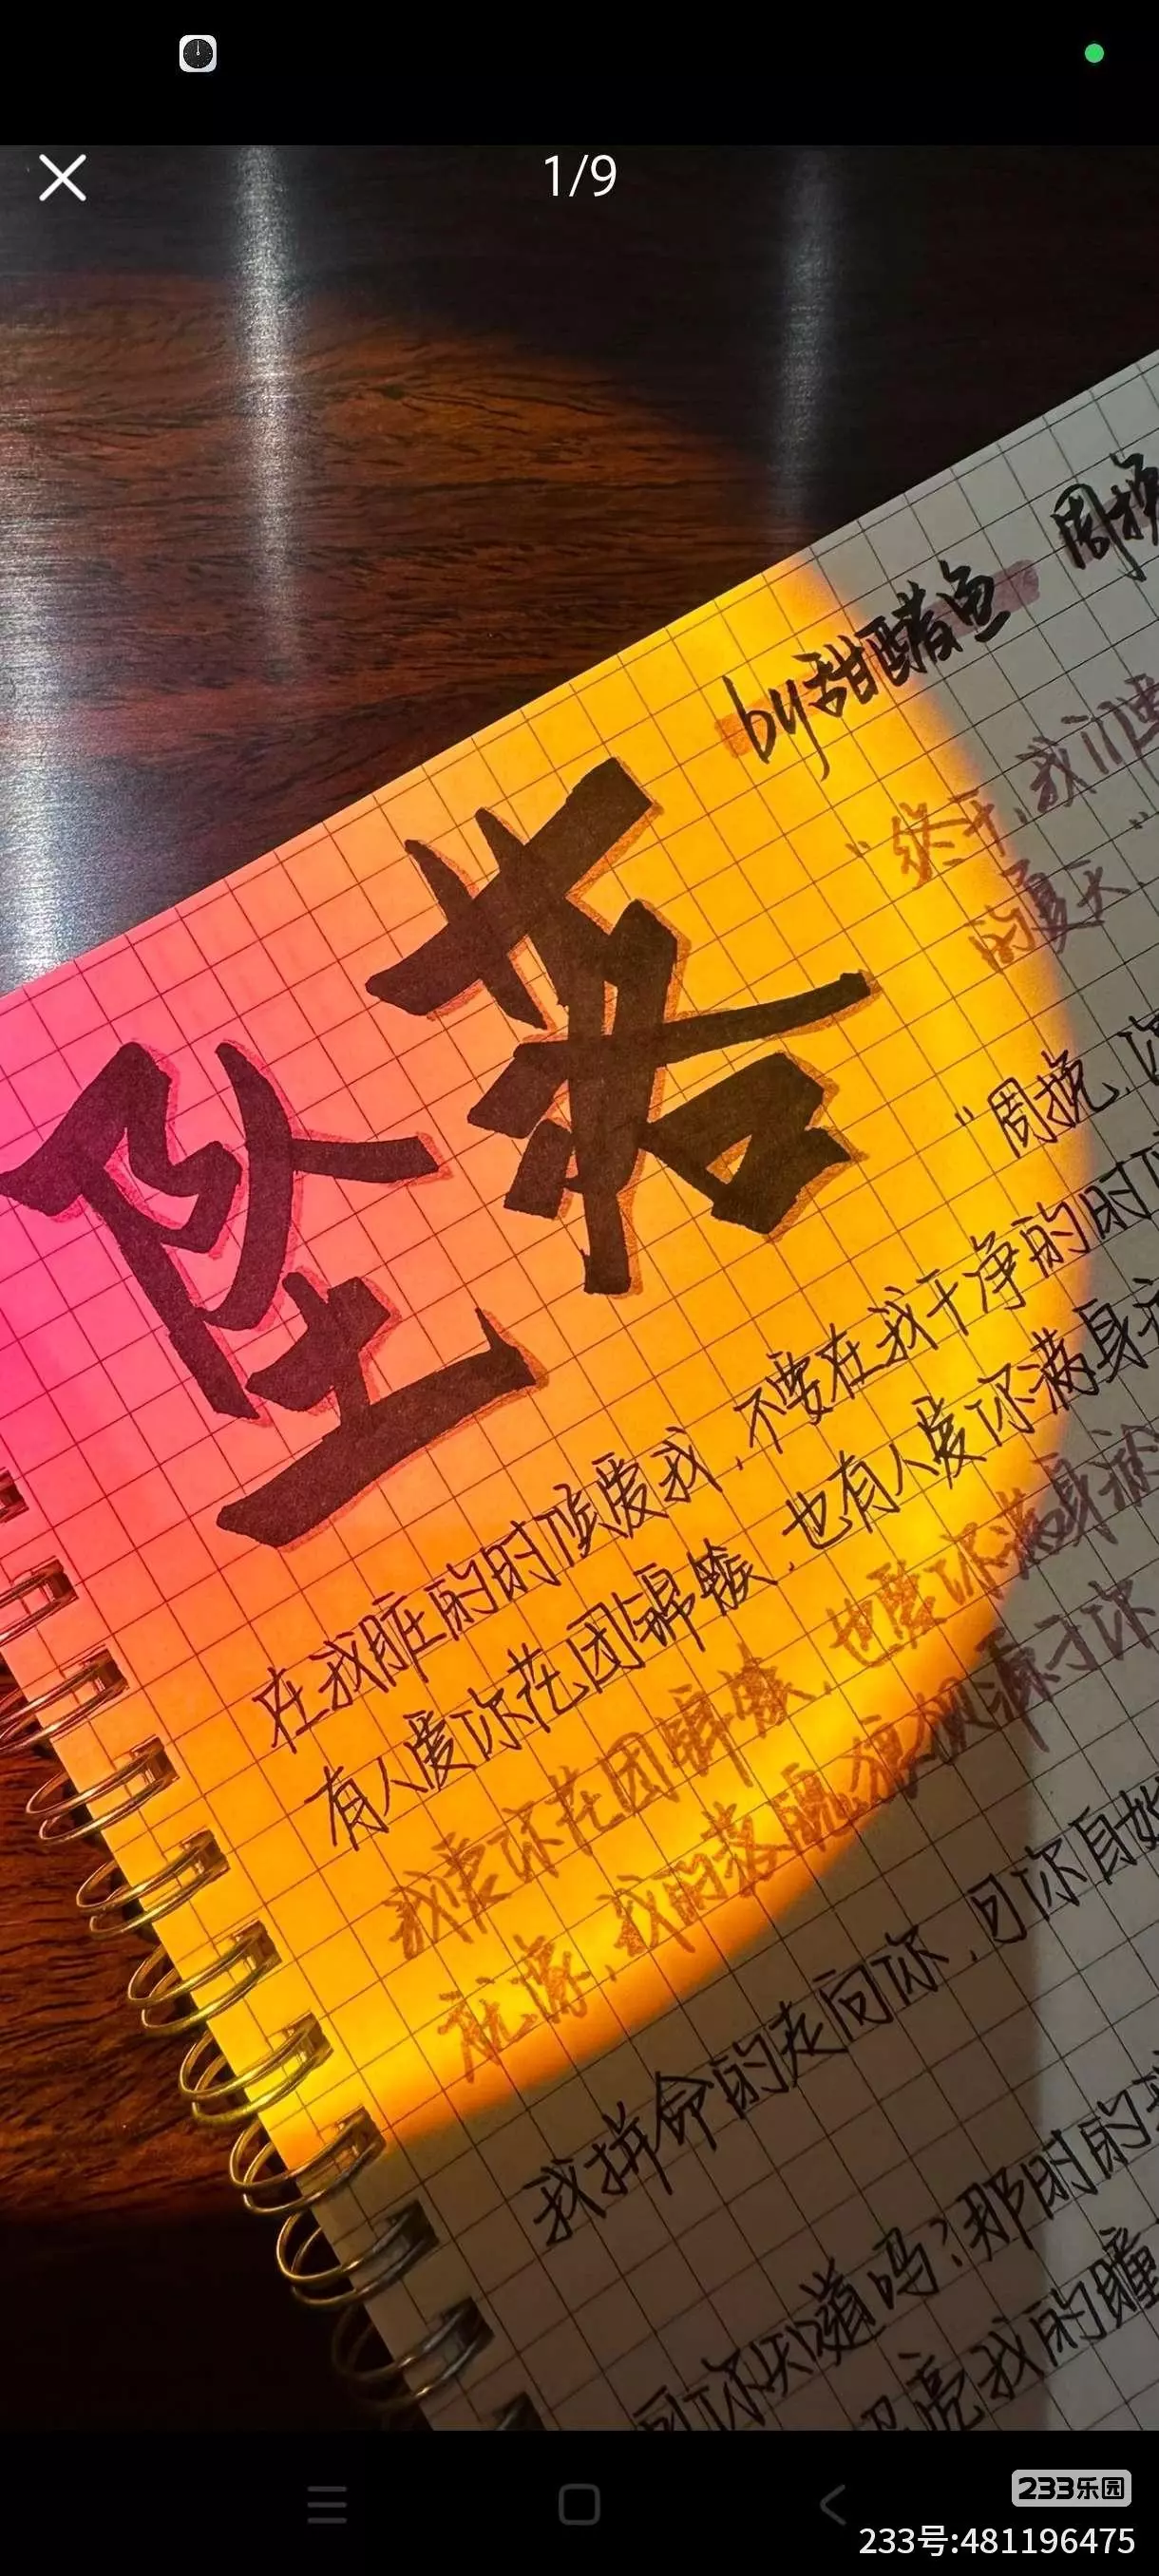 1/9
周挽
by甜醋鱼
"终于,我们要
的夏天"
坠落
"周挽,你
在我脏的时候爱我,不要在我干净的时候
有人爱你花团锦簇,也有人爱你满身
我要你花团锦簇,也要你满身
就像,我的落
我拼命的走向你,向你自
你知道吗?那时的我
亮我的瞳
233乐园
233号:481196475